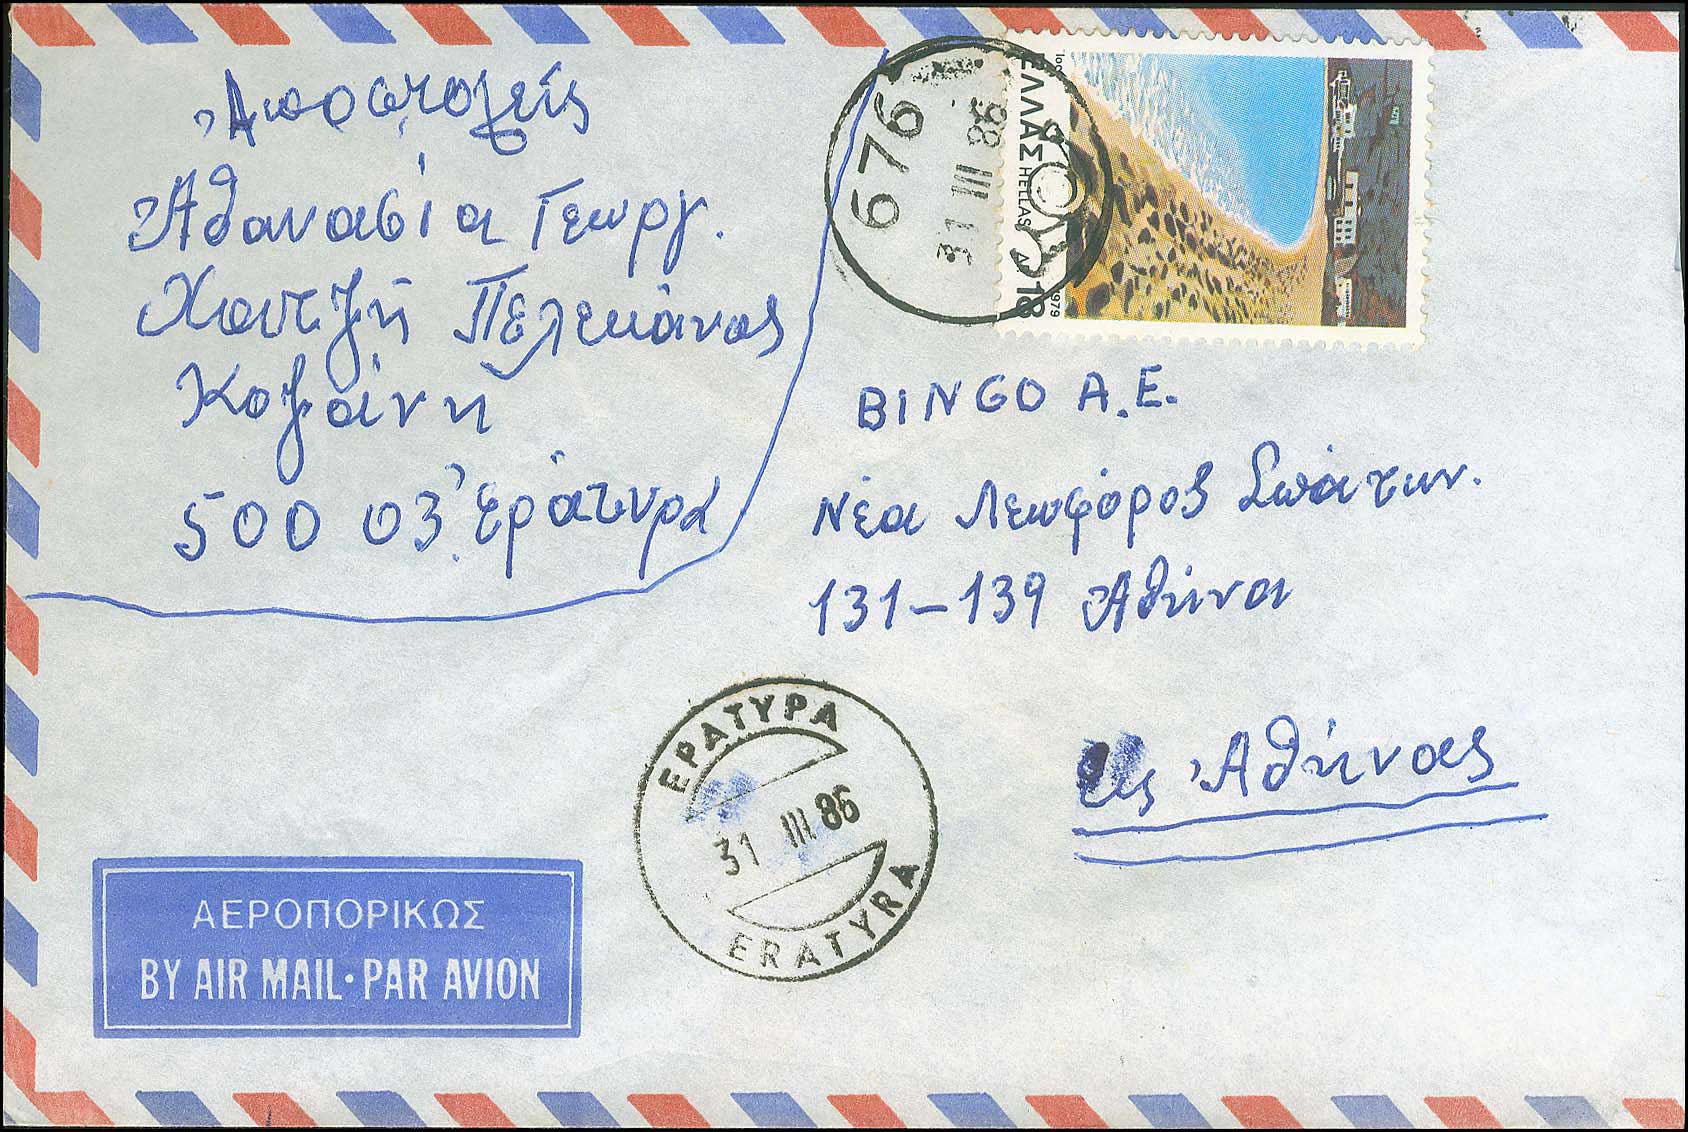 Ἀποστολεύς
Ἀθανασία Γεωργ.
Χαντζῆ Πελεκάνος
Κοζάνη
500 03 Ἐράτυρα
676
31 III 86
ΕΛΛΑΣ HELLAS
ΔΡ 18
1979
BINGO A.E.
Νέα Λεωφόρος Σπάτων.
131-139 Ἀθήνα
Ἀθήνας
ΕΡΑΤΥΡΑ
31 III 86
ERATYRA
ΑΕΡΟΠΟΡΙΚΩΣ
BY AIR MAIL·PAR AVION